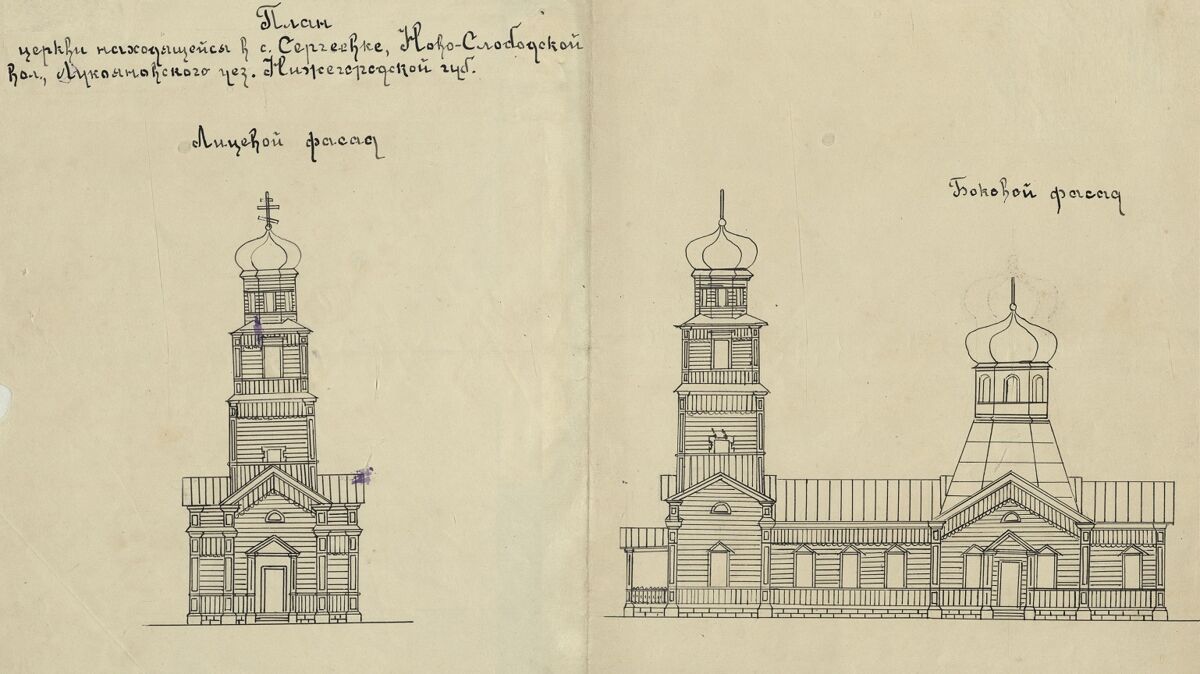 План
церкви находящейся в с. Сергеевке, Ново-Слободской
вол., Лукояновского уез. Нижегородской губ.
Лицевой фасад
Боковой фасад